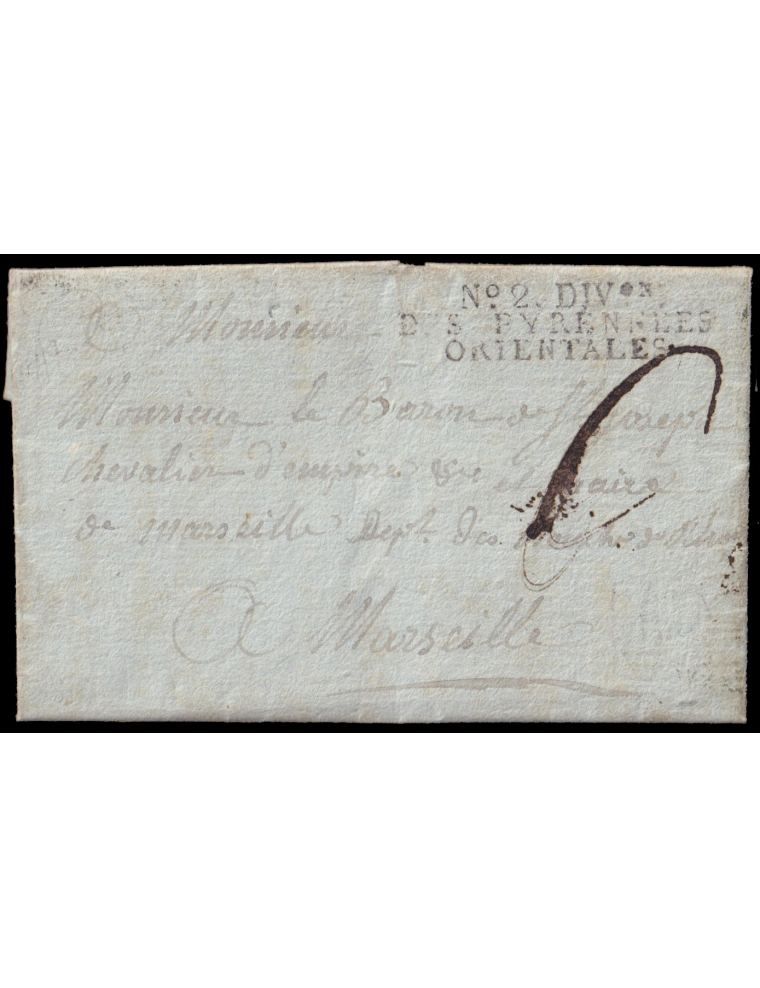 No. 2. DIVon.
DES PYRENNEES
ORIENTALES
A Monsieur
Monsieur le Baron de St Joseph
Chevalier d'empire et maire
de Marseille Dept. des de Rhone
A Marseille